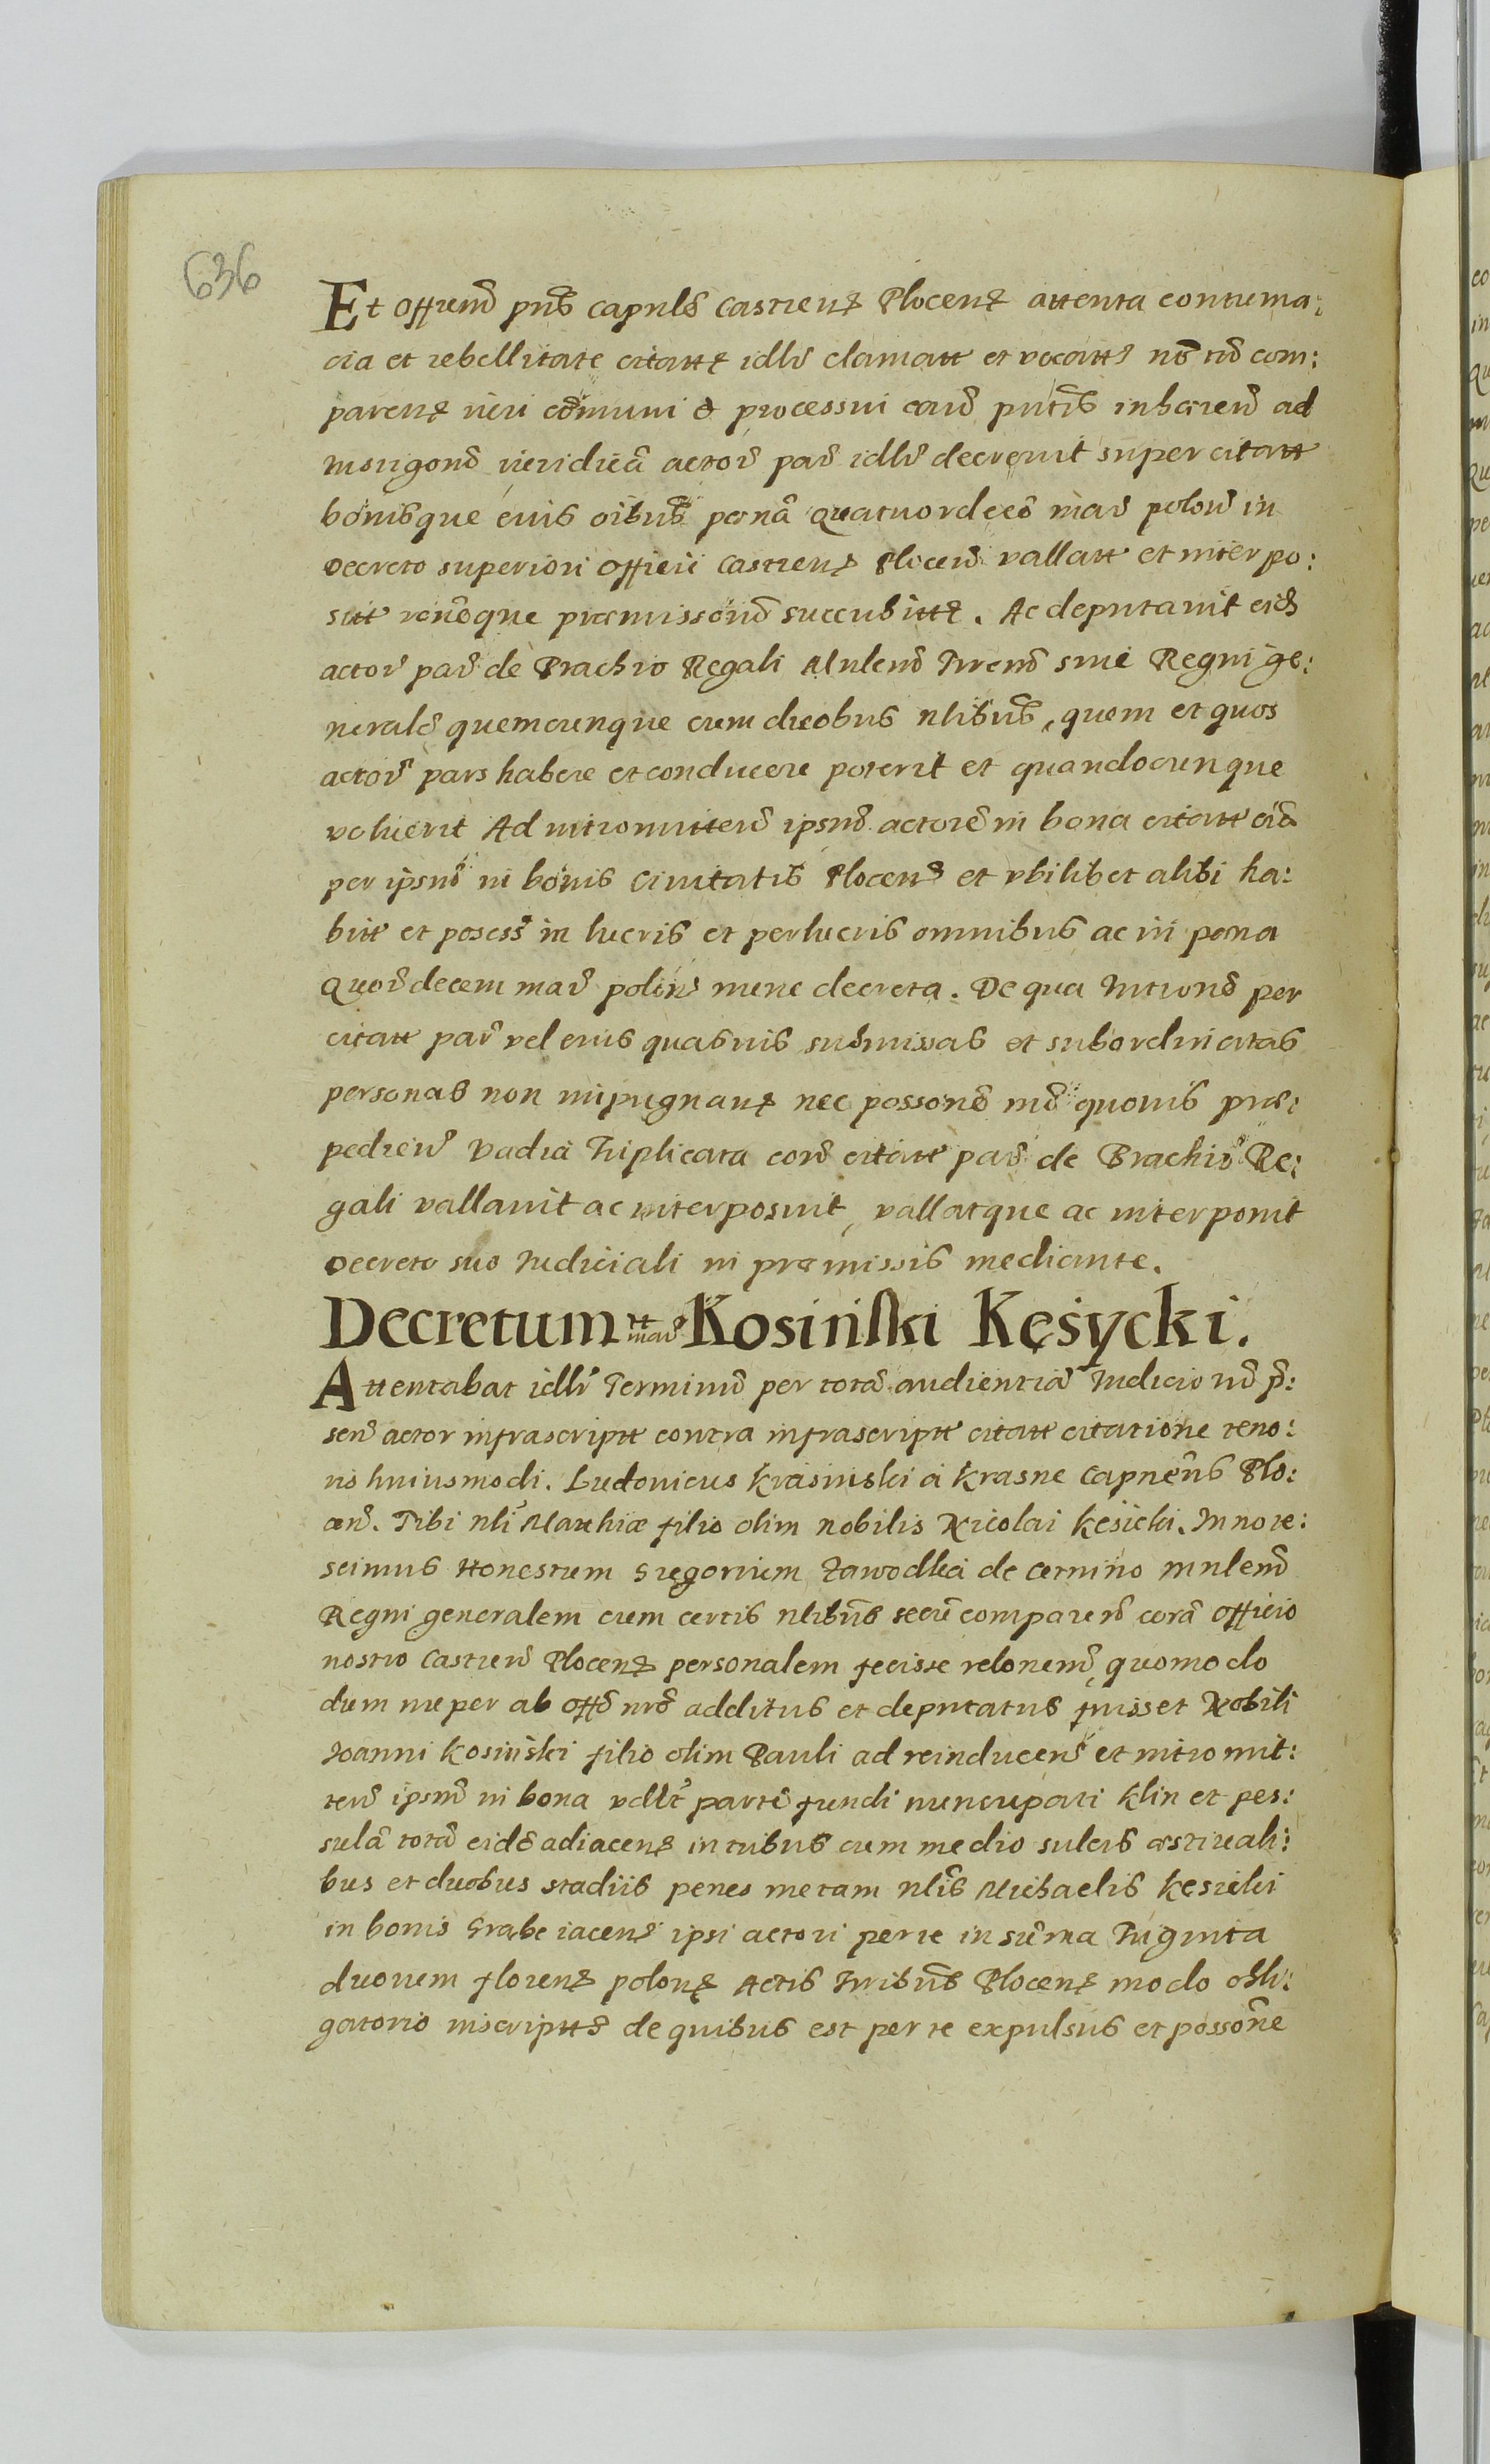 636
Et Offium pns capnle castrens Plocens attenta contuma:
cia et rebellitate citatt idlr clamatt et vocatt non com:
parens iuri communi & processui inhaerend ad
iuridica actor par idlr decrevit super citatt
bonisque eius oibus pœna quatuordeci mar polon in
Decreto superiori Officii Castrens Plocen vallatt et interpo:
sitt rone præmissorum succubitt. Ac deputavit eid
actor par de Brachio Regali Mnlem sive Regni ge:
neral quemcunque cum duobus nlibus, quem et quos
actor pars habere et conducere poterit et quandocunque
voluerit Ad intromittend ipsum actore in bona citatt
per ipsum in bonis Civitatis Plocens et vbilibet alibi ha:
bitt et posess in lucris et perlucris omnibus ac in pœna
Quordecem mar polon nunc decreta. De qua Introne per
citatt par vel eius quasvis submissas et subordinatas
personas non impugnan nec possone quovis præ:
pedien Vadia Triplicata cora citatt par de Brachio Re:
gali vallavit ac interposuit, vallatque ac interponit
Decreto suo Iudiciali in præmissis mediante.
Decretum tt mar Kosiński Kęsycki.
Attentabat idlr Terminu per tota audientia Iudicio
sen actor infrascriptt contra infrascriptt citatt citatione teno:
ris huiusmodi. Ludovicus Krasinski à Krasne Capneus Plo:
cen. Tibi nli Matthiæ filio olim nobilis Nicolai Kęsicki. Innote:
scimus Honestum Gregorium Zawodka de Cernino Mnlem
Regni generalem cum certis nlibus secu comparend cora Officio
nostro Castren Plocens personalem fecisse relonem, quomodo
dum nuper ab Offo nro additus et deputatus fuisset Nobili
Joanni Kosiński filio olim Pauli ad reinducend et intromit:
tend ipsum in bona vdlt parte fundi nuncupati Klin et pes:
sula tota eide adiacens in tribus cum medio sulcis æstivali:
bus et duobus stadiis penes metam nlis Michaelis Kęsicki
in bonis Grabe iacens ipsi actori per te in suma Triginta
duorum florens polons Actis Plocens modo obli:
gatorio inscriptt de quibus est per te expulsus et possone